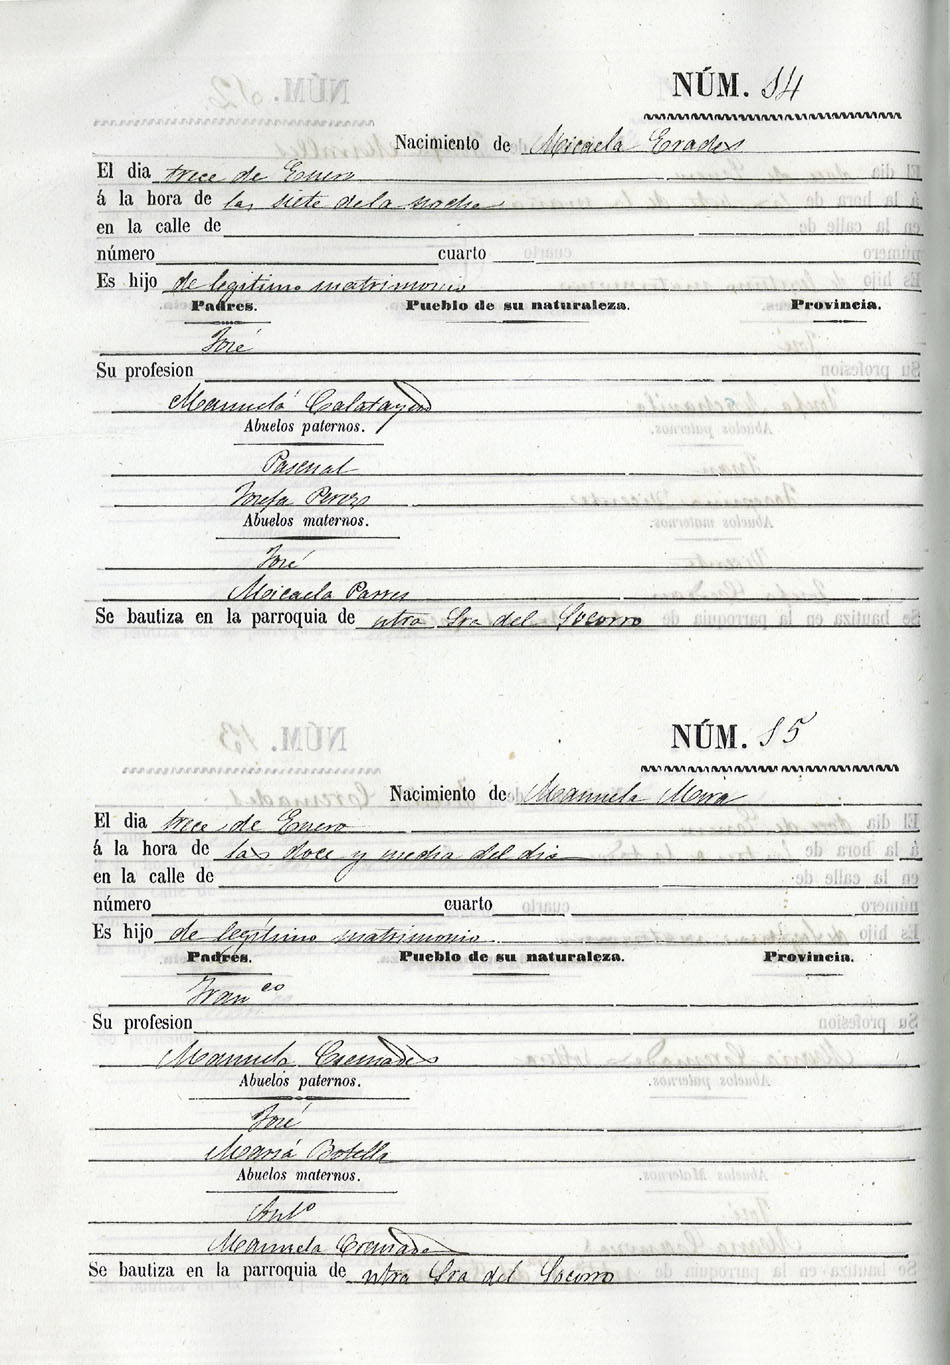 NÚM. 14
Nacimiento de Micaela Erades
El dia trece de Enero
á la hora de las siete de la noche
en la calle de
número cuarto
Es hijo de legitimo matrimonio
Padres. Pueblo de su naturaleza. Provincia.
José
Su profesion
Manuela Calatayud
Abuelos paternos.
Pascual
Josefa Perez
Abuelos maternos.
José
Micaela Parres
Se bautiza en la parroquia de ntra Sra del Socorro
NÚM. 15
Nacimiento de Manuela Mira
El dia trece de Enero
á la hora de las doce y media del dia
en la calle de
número cuarto
Es hijo de legítimo matrimonio
Padres. Pueblo de su naturaleza. Provincia.
Franco
Su profesion
Manuela Cremades
Abuelos paternos.
José
Maria Botella
Abuelos maternos.
Anto
Manuela Cremades
Se bautiza en la parroquia de ntra Sra del Socorro